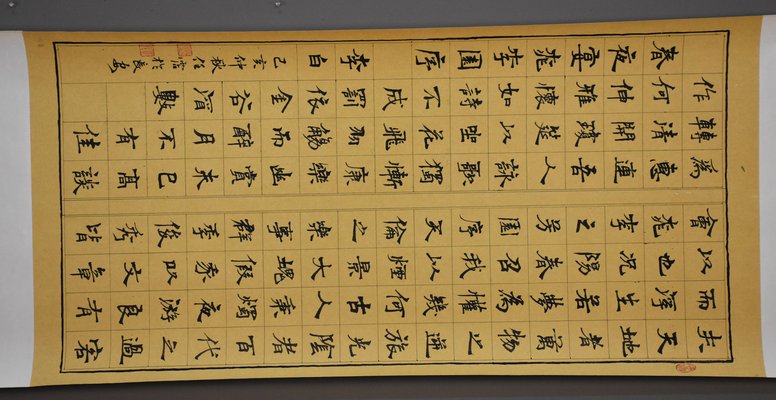 夫天地者萬物之逆旅光陰者百代之過客
而浮生若夢為懽幾何古人秉燭夜遊良有
以也況陽春召我以煙景大塊假我以文章
會桃李之芳園序天倫之樂事群季俊秀皆
為惠連吾人詠歌獨慚康樂幽賞未已高談
轉清開瓊筵以坐花飛羽觴而醉月不有佳
作何伸雅懷如詩不成罰依金谷酒數
春夜宴桃李園序 李白
己亥仲秋任於長安